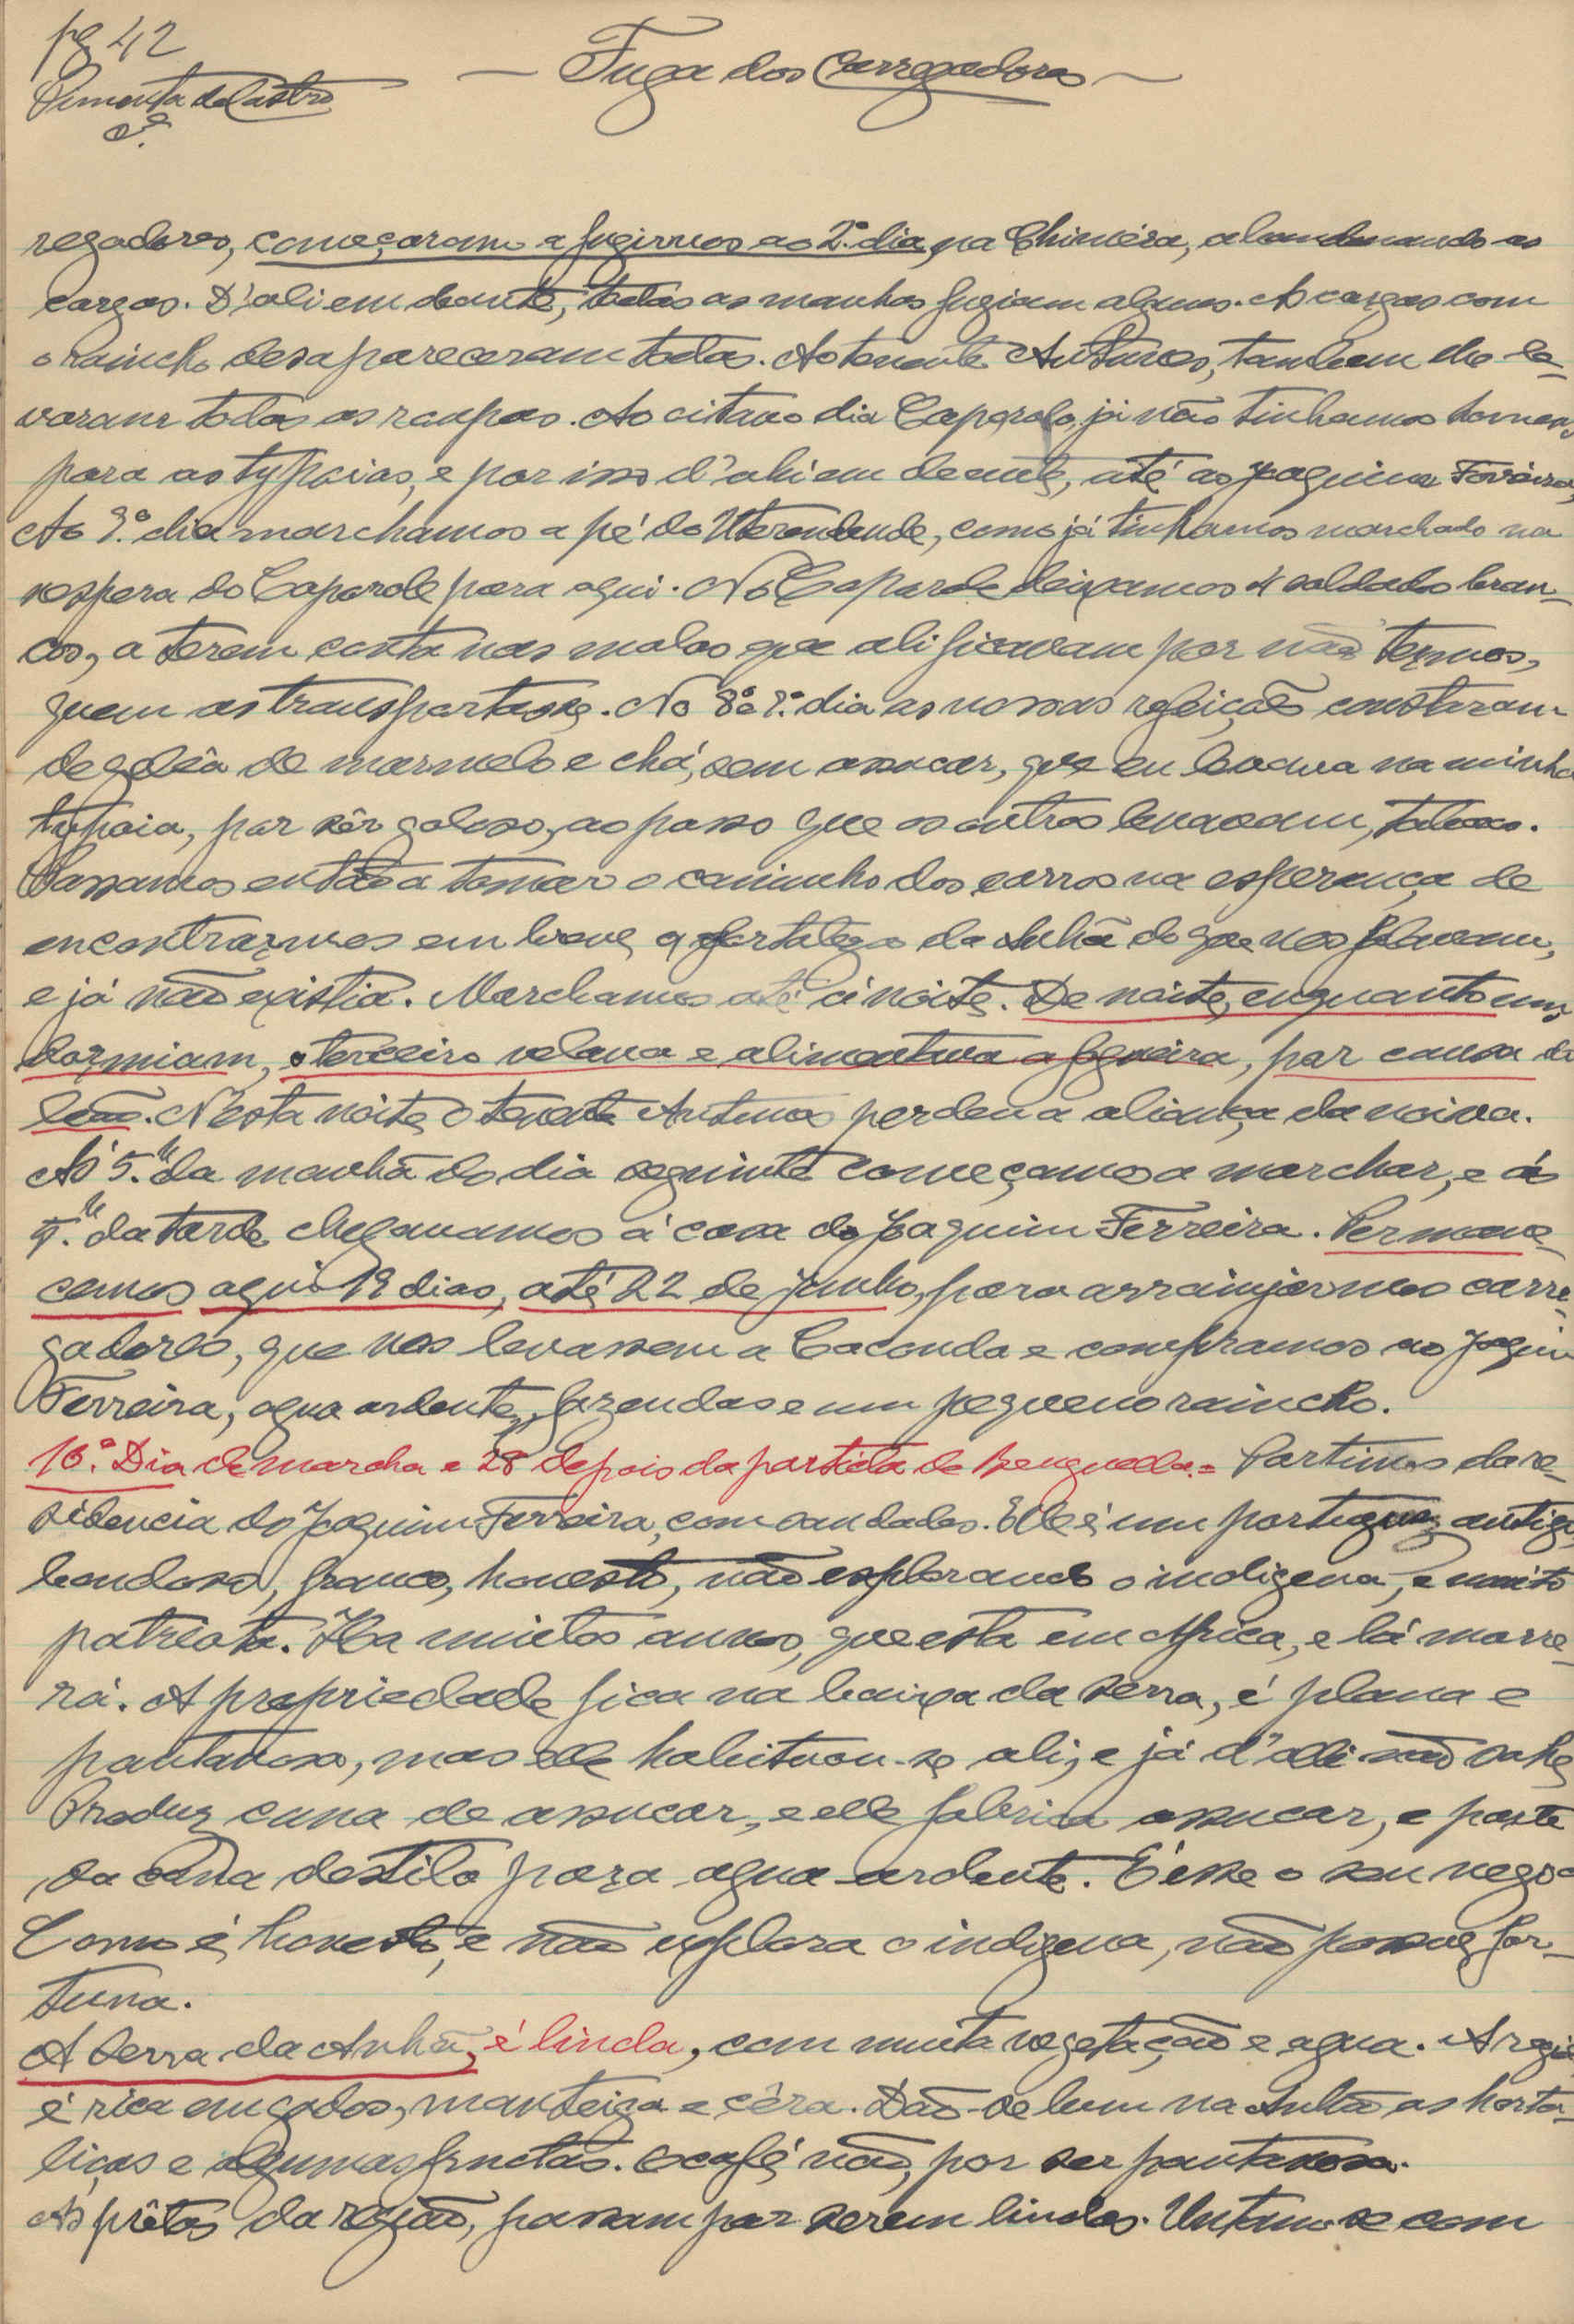 pg 42
Pimenta de Castro
— Fuga dos Carregadores —
regadores, começaram a fugirnos ao 2.º dia, na Chimera, abandonando as
cargas. D'ali em deante, todas as manhas fugiam alguns. As cargas com
o raincho desapareceram todas. Ao tenente Antunes, tambem lhe le-
varam todas as roupas. Ao oitavo dia Caporolo, já não tinhamos homens
para as typoias, e por isso d'ahi em deante, até ao Joaquim Ferreira,
Ao 9.º dia marchamos a pé do Uterendende, como já tinhamos marchado na
vespera do Caporole para aqui. No Caporole deixamos 4 soldados bran-
cos, a terem conta nas malas que ali ficavam por não termos,
quem as transportasse. No 8º e 9.º dia as nossas refeições constaram
de geleia de marmelo e chá, sem assucar, que eu levava na minha
typoia, por sêr guloso, ao passo que os outros levavam, tabaco.
Passamos então a tomar o caminho dos carros na esperança de
encontrarmos em breve, a fortaleza da Anhã do que nos falavam,
e já não existia. Marchamos até á noite. De noite, enquanto uns
dormiam, o terceiro velava e alimentava a fogueira, por causa do
leão. Nesta noite, o tenente Antunes perdeu a aliança da noiva.
Ás 5.h da manhã do dia seguinte começamos a marchar, e ás
5.h da tarde chegavamos á casa do Joaquim Ferreira. Permane-
cemos aqui 19 dias, até 22 de junho, para arrainjarmos carre-
gadores, que nos levassem a Caconda e compramos ao Joaquim
Ferreira, agua ardente, fazendas e um pequeno raincho.
10.º Dia de marcha e 28 depois da partida de Benguella = Partimos da re-
sidencia do Joaquim Ferreira, com saudades. Elle é um portuguez antigo,
bondoso, franco, honesto, não explorando o indigena, e muito
patriota. Ha muitos annos, que esta em Africa, e lá morre-
rá. A propriedade fica na baixa da serra, é plana e
pantanosa, mas elle habituou-se ali, e já d'alli não sahe
Produz cana de assucar, e elle fabrica assucar, e parte
da cana destila para agua ardente. É esse o seu nego-
Como é, honesto, e não explora o indigena, não possue for-
tuna.
A Serra da Anhã, é linda, com muita vegetação e agua. A região
é rica em gados, manteiga e cêra. Dão-se bem na Anhã as horta-
liças e algumas fructas. O café, não, por ser pantanosa.
As prêtas da região, passam por serem lindas. Untam-se com